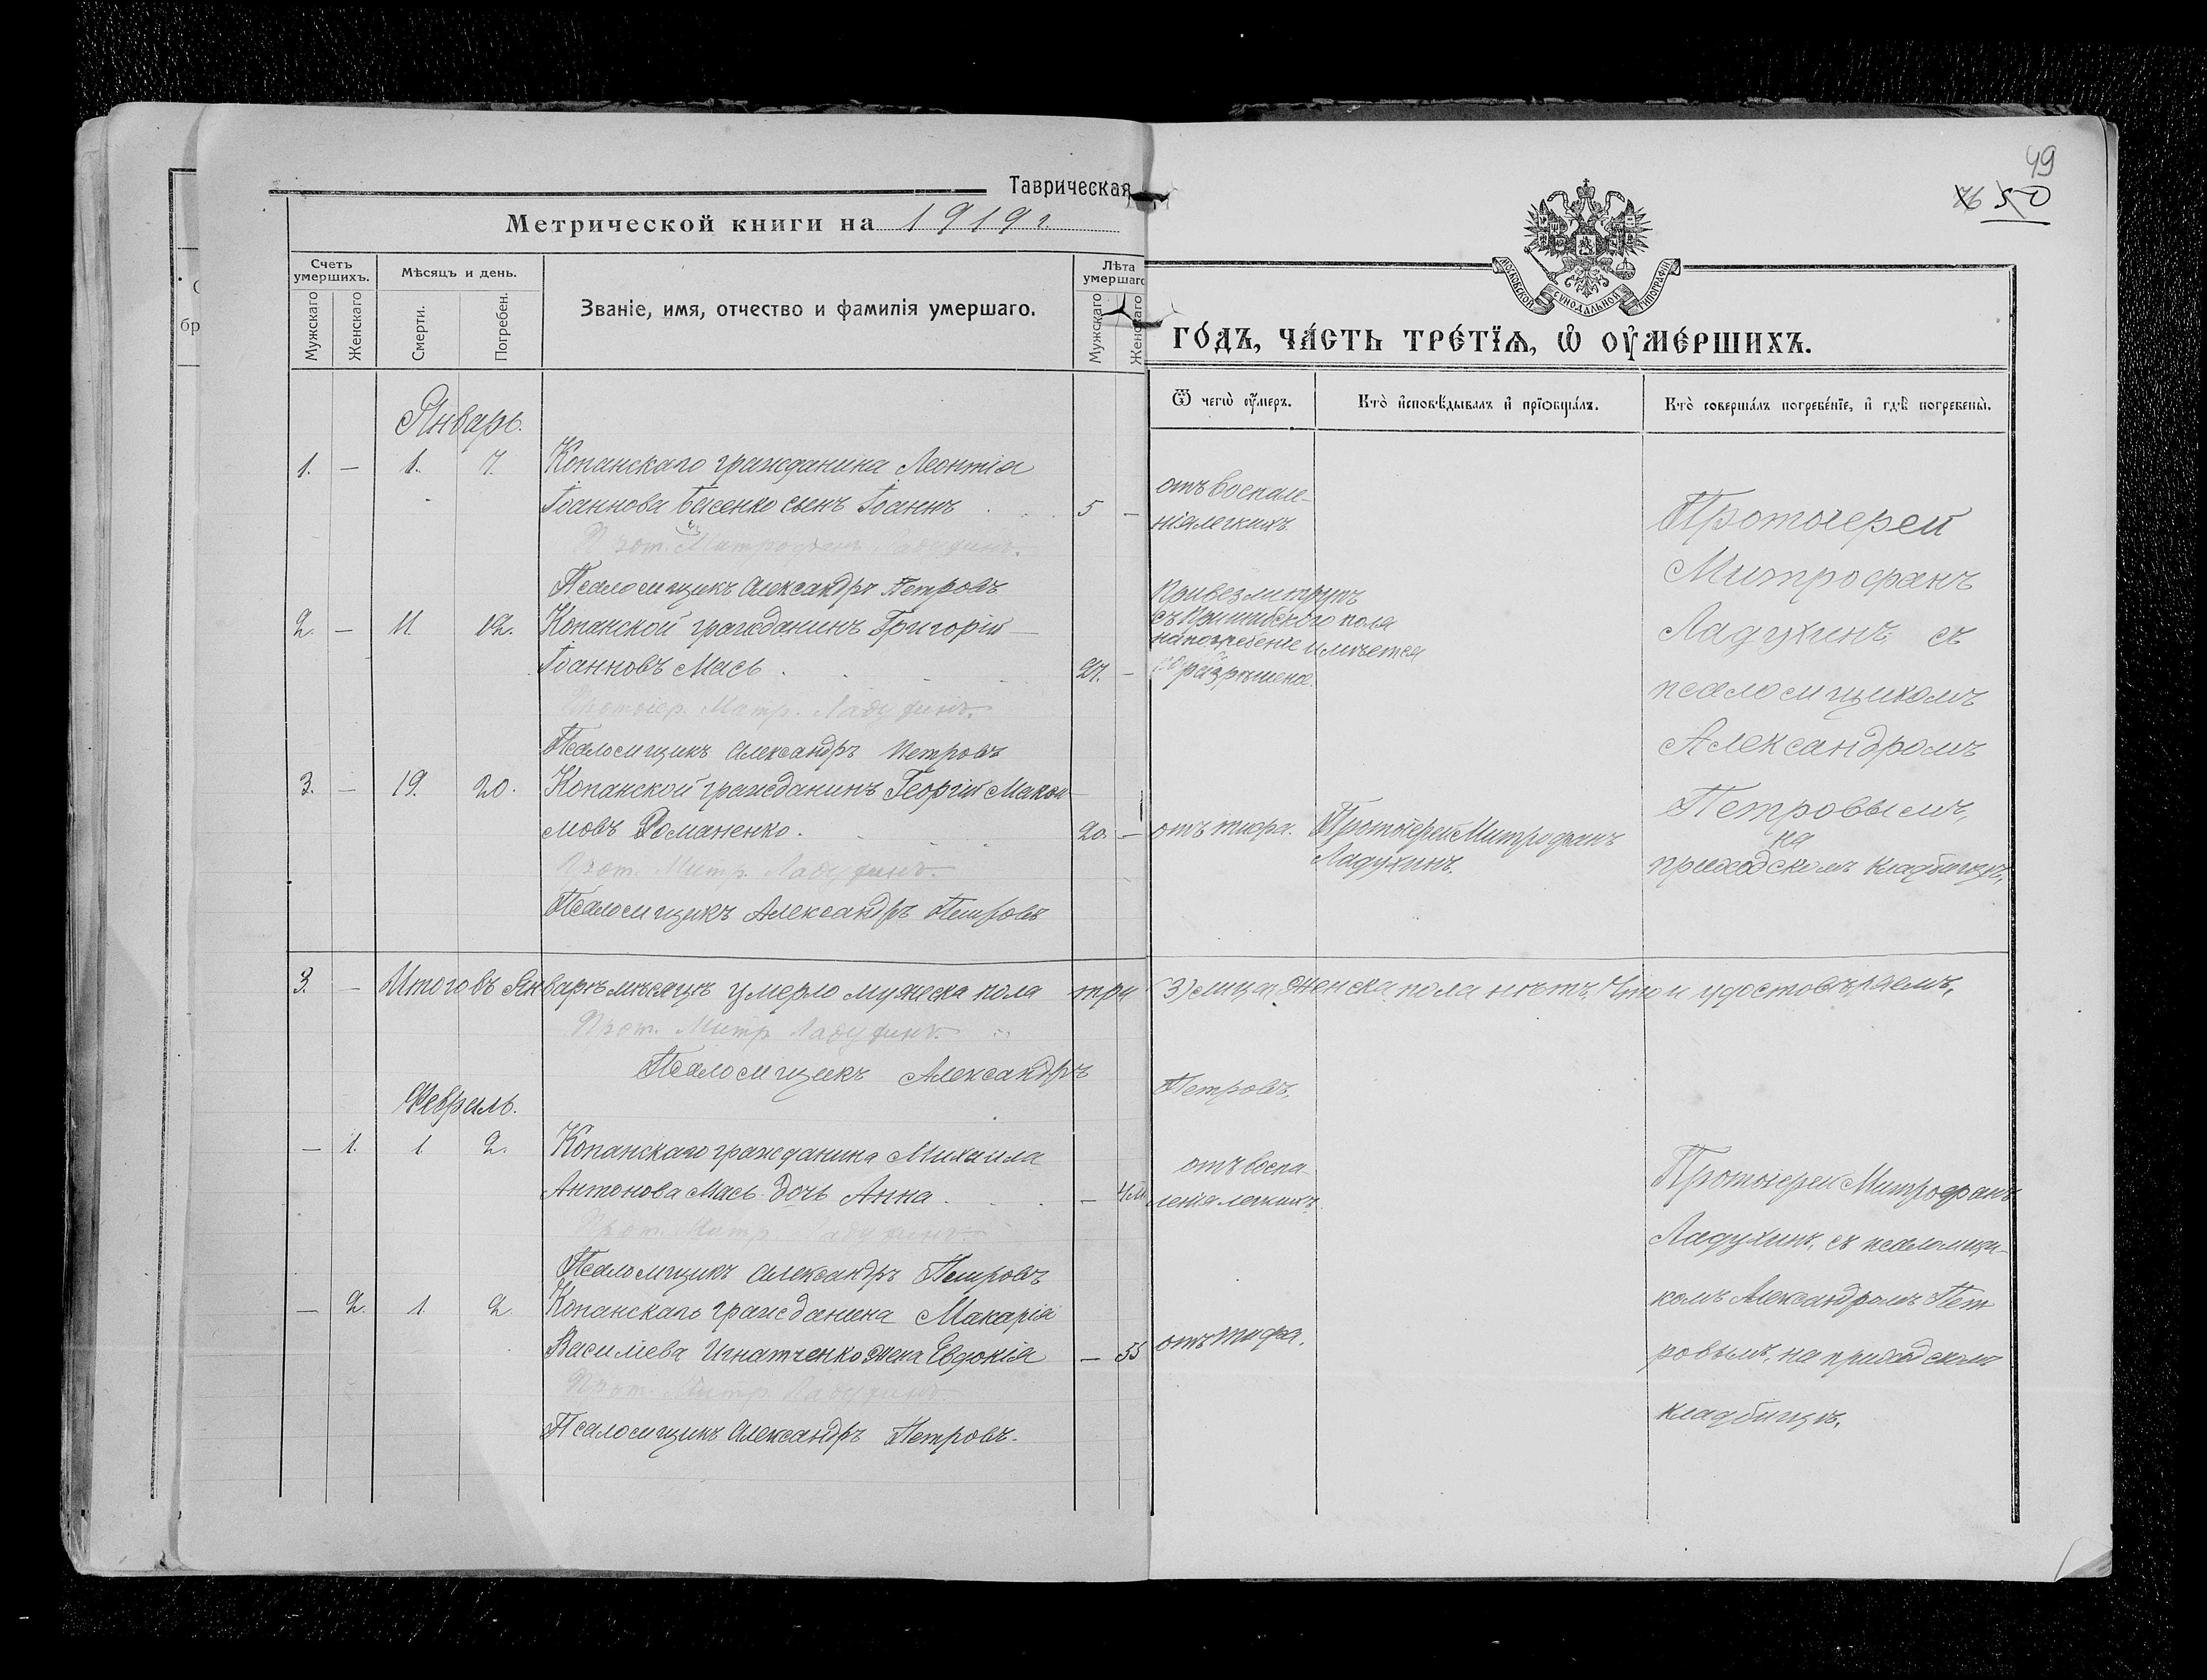 Таврическая
Метрической книги на 1919 г
Счетъ умершихъ.
Мѣсяцъ и день.
Званіе, имя, отчество и фамилія умершаго.
Лѣта умершаго
Мужскаго
Женскаго
Смерти.
Погребен.
Мужскаго
Женскаго
Январь.
1. — 1. 7. Копанскаго гражданина Леонтія
Іоаннова Басенко сынъ Іоаннъ 5 —
Прот. Митрофанъ Ладухинъ.
Псаломщикъ Александръ Петровъ
2. — 11. 12. Копанской гражданинъ Григорій
Іоанновъ Мась. 27. —
Протоіер. Митр. Ладухинъ.
Псаломщикъ Александръ Петровъ
3. — 19. 20. Копанской гражданинъ Георгій Макси
мовъ Романенко. 20. —
Прот. Митр. Ладухинъ.
Псаломщикъ Александръ Петровъ
3. — Итого въ Январѣ мѣсяцѣ умерло мужеска пола три
Прот. Митр. Ладухинъ.
Псаломщикъ Александръ
Февраль.
— 1. 1 2. Копанскаго гражданина Михаила
Антонова Мась дочь Анна. — 4 м
Прот. Митр. Ладухинъ.
Псаломщикъ Александръ Петровъ
— 2. 1. 2. Копанскаго гражданина Макарія
Василіева Игнатченко жена Евдокія — 55
Прот. Митр. Ладухинъ.
Псаломщикъ Александръ Петровъ.
49
76 50
МОСКОВСКОЙ СѴНОДАЛЬНОЙ ТИПОГРАФІИ
го́дъ, ча́сть тре́тїѧ, ѡ҆ оу҆ме́ршихъ.
Ѿ чегѡ̀ оу҆́меръ.
Кто̀ и҆сповѣ́дывалъ и҆ прїѡбща́лъ.
Кто̀ соверша́лъ погребе́нїе, и҆ гдѣ̀ погребены̀.
отъ воспале-
нія легкихъ
Привезли трупъ
съ Пришибского поля
на погребеніе имѣется
разрѣшеніе.
отъ тифа.
Протоіерей Митрофанъ
Ладухинъ.
Протоіерей
Митрофанъ
Ладухинъ, съ
псаломщикомъ
Александромъ
Петровымъ,
на
приходскомъ кладбищѣ,
3) лица, женска пола нѣтъ, Что и удостовѣряемъ,
Петровъ,
отъ воспа-
ленія легкихъ.
отъ тифа.
Протоіерей Митрофанъ
Ладухинъ, съ псаломщи-
комъ Александромъ Пет
ровымъ, на приходскомъ
кладбищѣ,